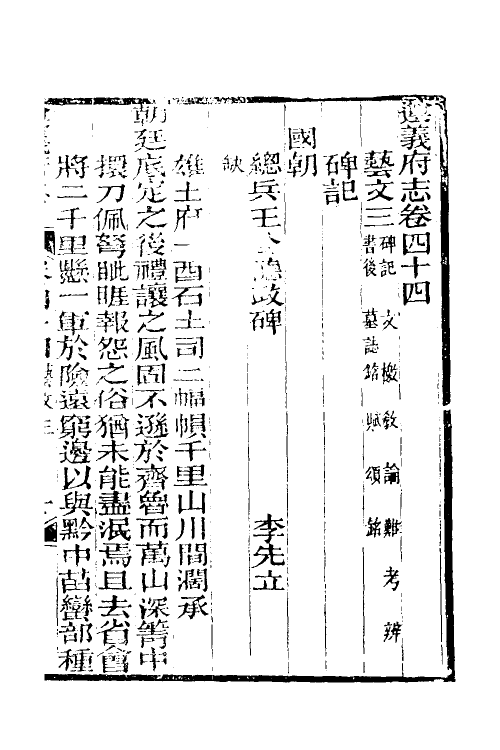 遵義府志卷四十四
藝文三 碑記 文 檄 敘 論 難 考 辨 書後 墓誌銘 賦 頌 銘
碑記
國朝
總兵王公德政碑 李先立
缺
雄土府一酉石土司二幅幀千里山川間濶承
朝廷底定之後禮讓之風固不遜於齊魯而萬山深箐中
擐刀佩弩眦睚報怨之俗猶未能盡泯焉且去省會
將二千里懸一軍於險遠窮邊以與黔中苗蠻部種